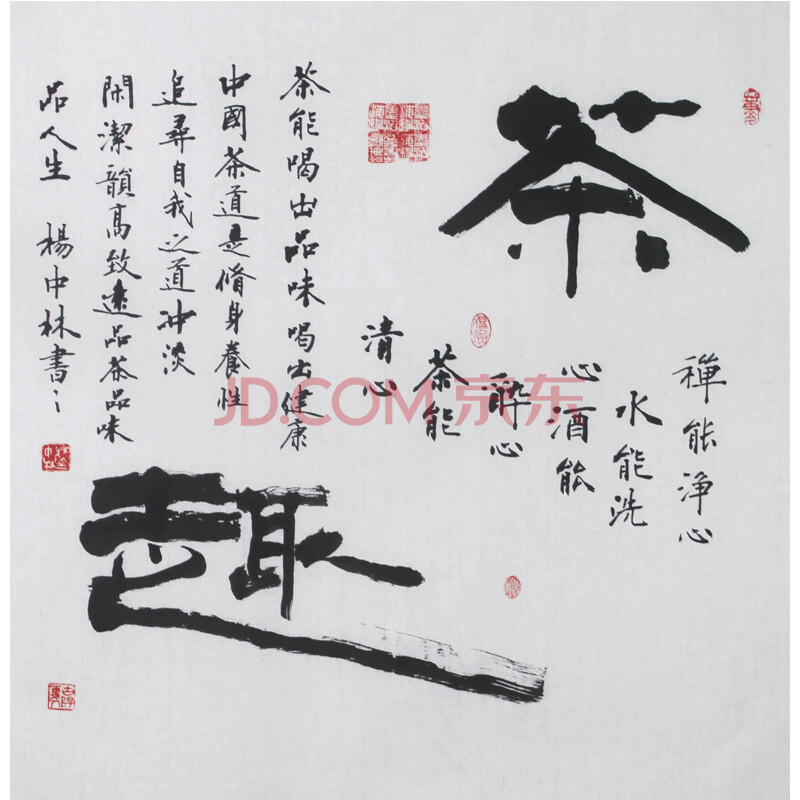 茶
趣
禪能淨心
水能洗
心酒能
酔心
茶能
清心
茶能喝出品味喝出健康
中國茶道是脩身養性
追尋自我之道冲淡
閑潔韻高致遠品茶品味
品人生 楊中林書〻
JD.COM 京东